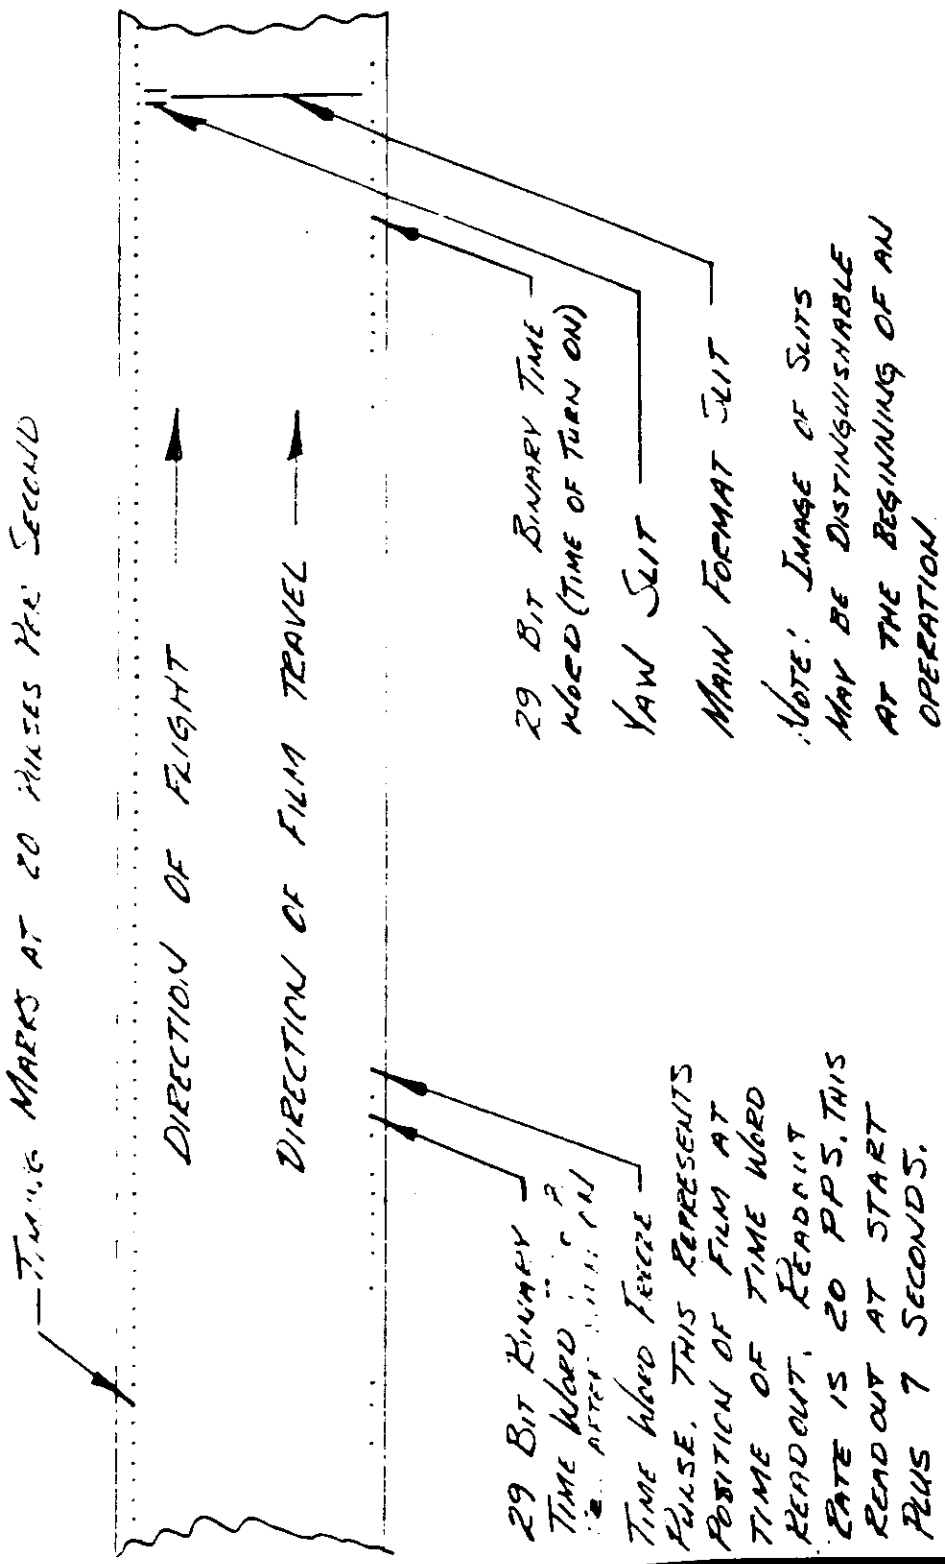 TIMING MARKS AT 20 PULSES PER SECOND
DIRECTION OF FLIGHT
DIRECTION OF FILM TRAVEL
29 BIT BINARY
TIME WORD
AFTER
TIME WORD FREEZE
PULSE. THIS REPRESENTS
POSITION OF FILM AT
TIME OF TIME WORD
READOUT. READOUT
RATE IS 20 PPS. THIS
READOUT AT START
PLUS 7 SECONDS.
29 BIT BINARY TIME
WORD (TIME OF TURN ON)
YAW SLIT
MAIN FORMAT SLIT
NOTE: IMAGE OF SLITS
MAY BE DISTINGUISHABLE
AT THE BEGINNING OF AN
OPERATION